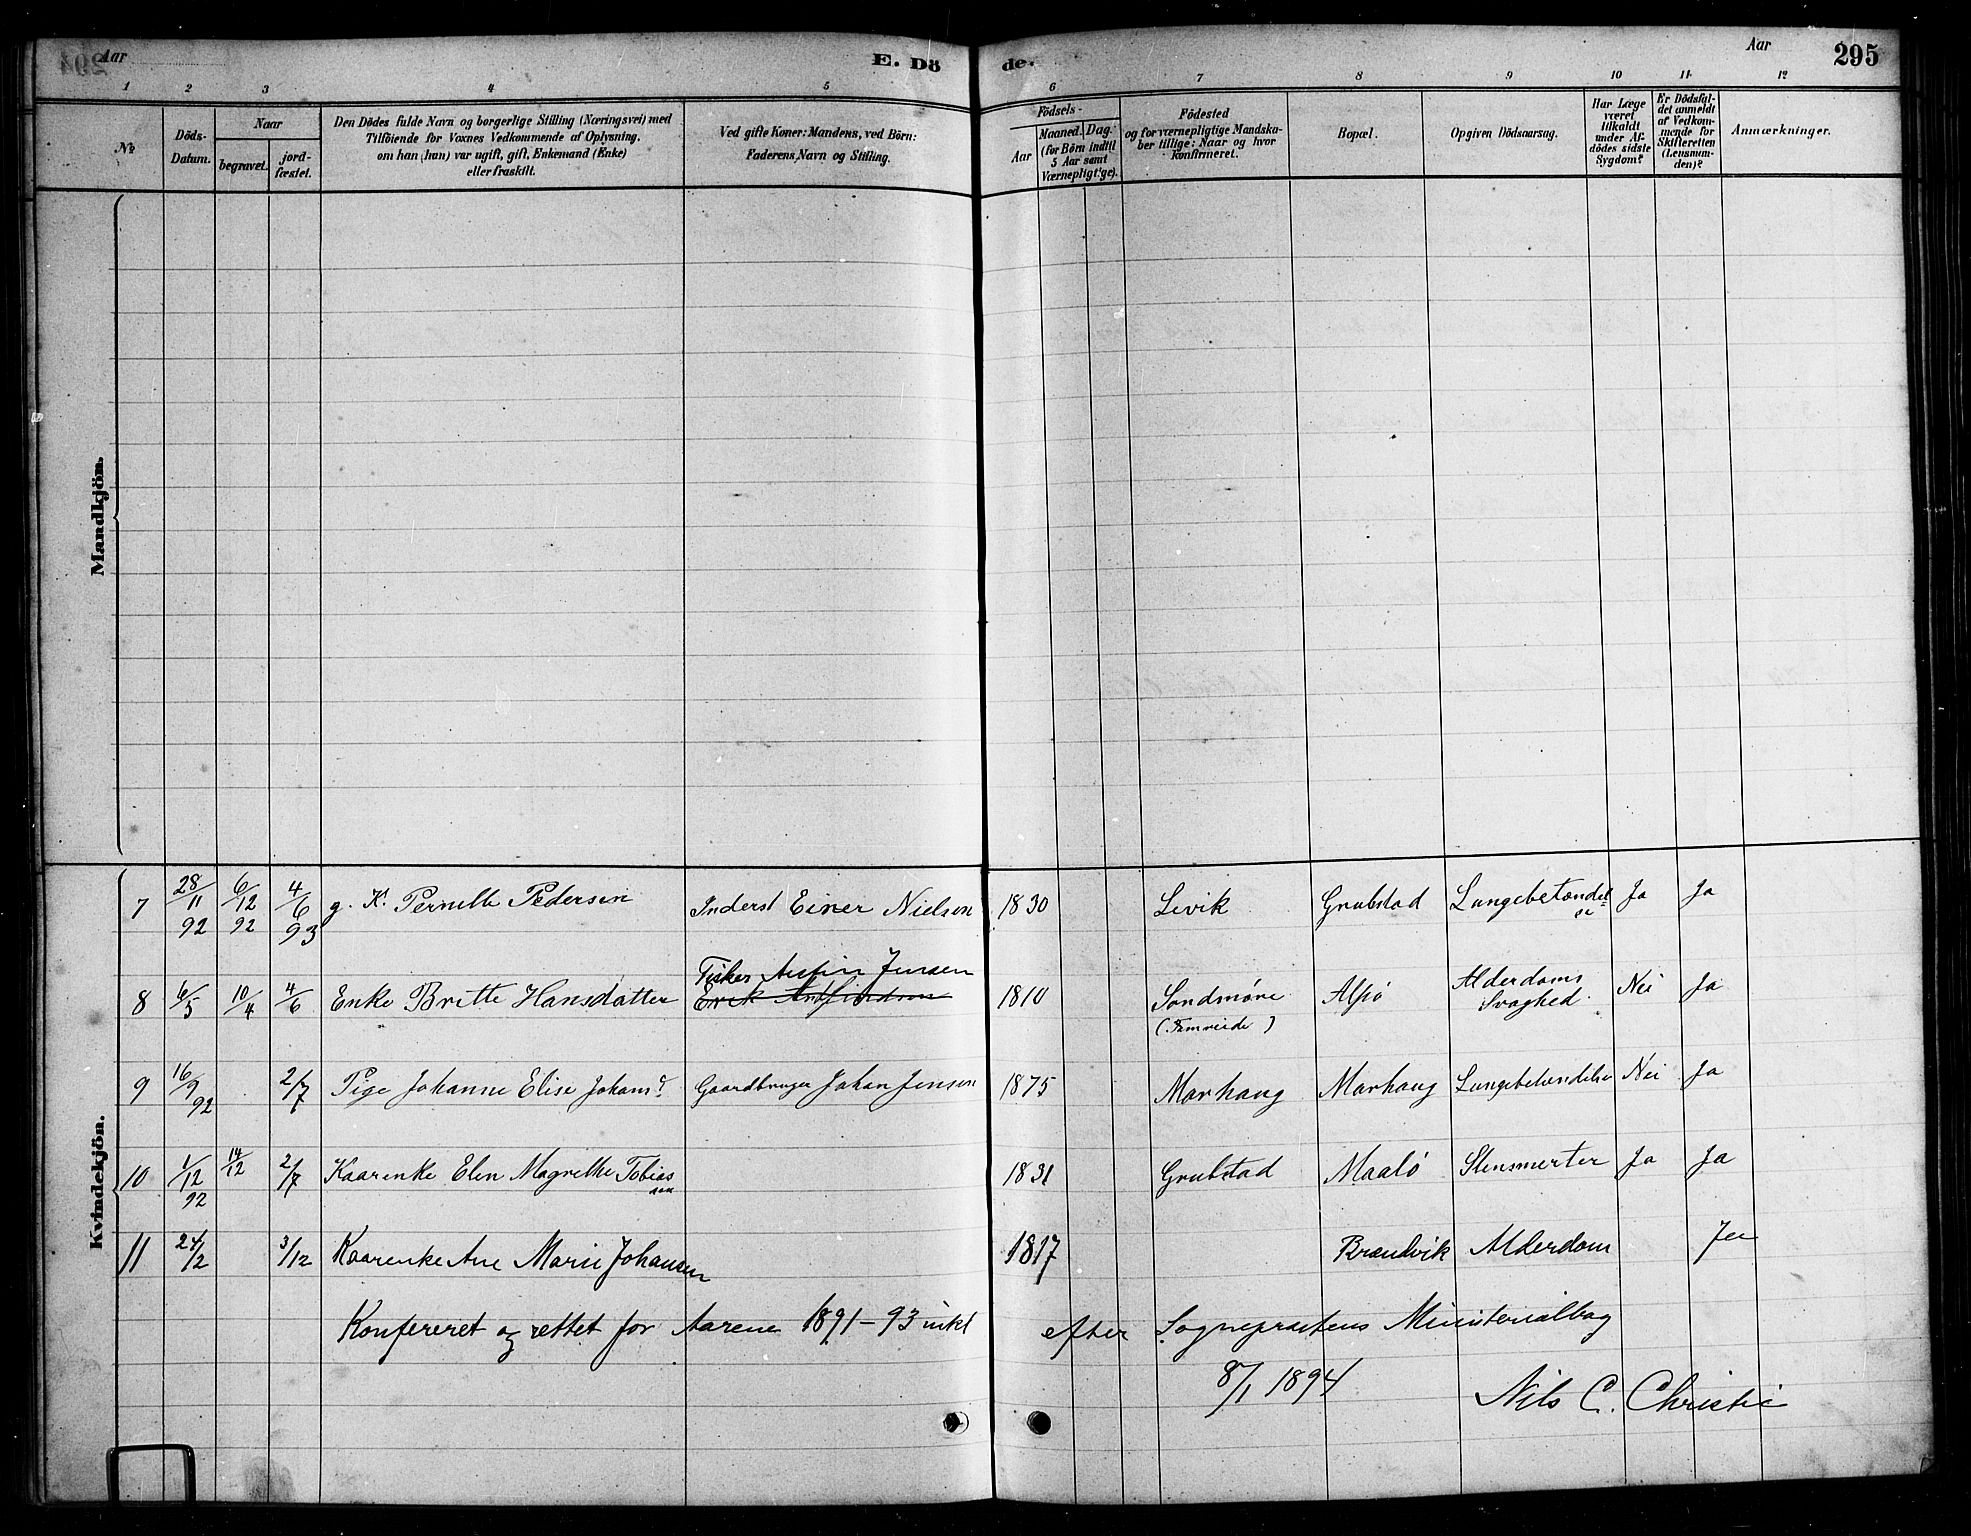 Aar E. Dö de. Aar 295
1 2 3 4 5 6 7 8 9 10 11 12
No
Döds-Datum.
Naar
begravet.
jord-fæstet.
Den Dödes fulde Navn og borgerlige Stilling (Næringsvei) med
Tilföiende for Voxnes Vedkommende af Oplysning,
om han (hun) var ugift, gift, Enkemand (Enke)
eller fraskilt.
Ved gifte Koner: Mandens, ved Börn:
Faderens, Navn og Stilling.
Födsels-
Aar
Maaned. Dag.
(for Börn indtil
5 Aar samt
Værnepligtige).
Födested
og for værnepligtige Mandska-
ber tillige: Naar og hvor
konfirmeret.
Bopæl.
Opgiven Dödsaarsag.
Har Læge
været
tilkaldt
under Af-
dödes sidste
Sygdom?
Er Dödsfal-
det anmeldt
af Vedkom-
mende for
Skifteretten
(Lensman-
den)?
Anmærkninger.
Mandkjön.
Kvindekjön.
7 28/11 92 6/12 92 4/6 93 g. K. Pernille Pedersen Inderst Einer Nielsen 1830 Levik Grubstad Lungebetændelse Ja Ja
Fisker Austin Jensen
8 6/5 10/4 4/6 Enke Britte Hansdatter Erik 1810 Søndmøre Alsø Alderdoms Svaghed. Nei Ja
9 16/9 92 2/7 Pige Johanne Elise Johansd. Gaardbruger Johan Jensen 1875 Marhaug Marhaug Lungebetændelse Nei Ja
10 1/12 92 14/12 2/7 Kaarenke Elen Magrethe Tobiassen 1831 Grubstad Maalø Stensmerter Ja Ja
11 24/2 3/12 Kaarenke Ane Marie Johansen 1817 Brændvik Alderdom Ja
Konfereret og rettet for Aarene 1891-93 inkl efter Sogneprestens Ministerialbog
8/1 1894
Nils C. Christie